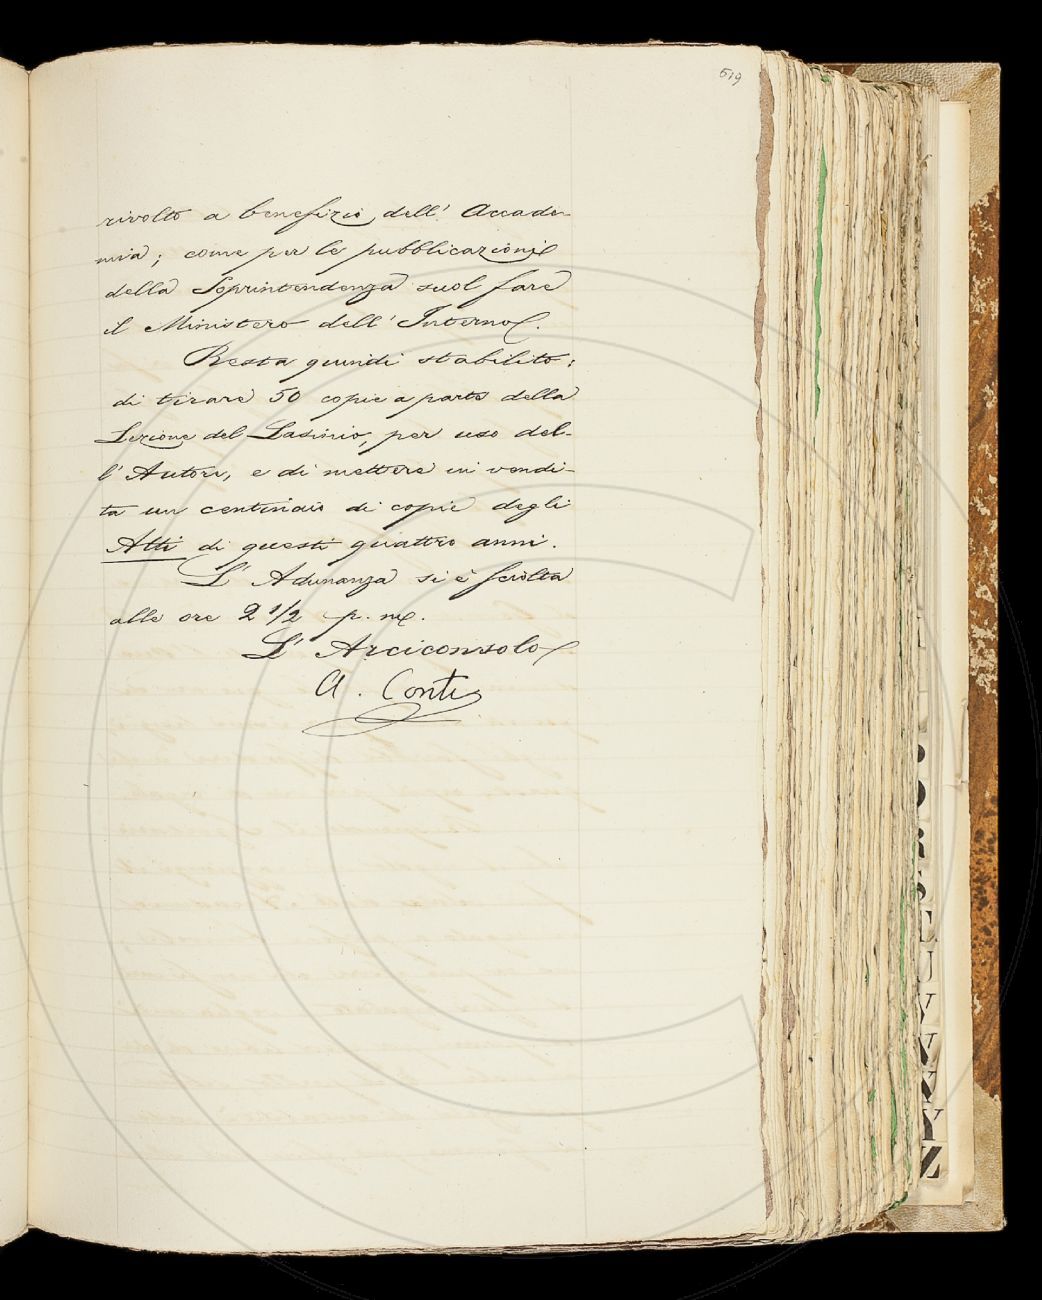 519
rivolto a benefizio dell' Accade-
mia; come per le pubblicazioni
della Soprintendenza suol fare
il Ministero dell' Interno.
Resta quindi stabilito:
di tirare 50 copie a parte della
Lezione del Lasinio, per uso del-
l' Autore, e di mettere in vendi-
ta un centinaio di copie degli
Atti di questi quattro anni.
L' Adunanza si è sciolta
alle ore 2 1/2 p. m.
L' Arciconsolo
A. Conti
R
S
T
U
V
W
X
Y
Z